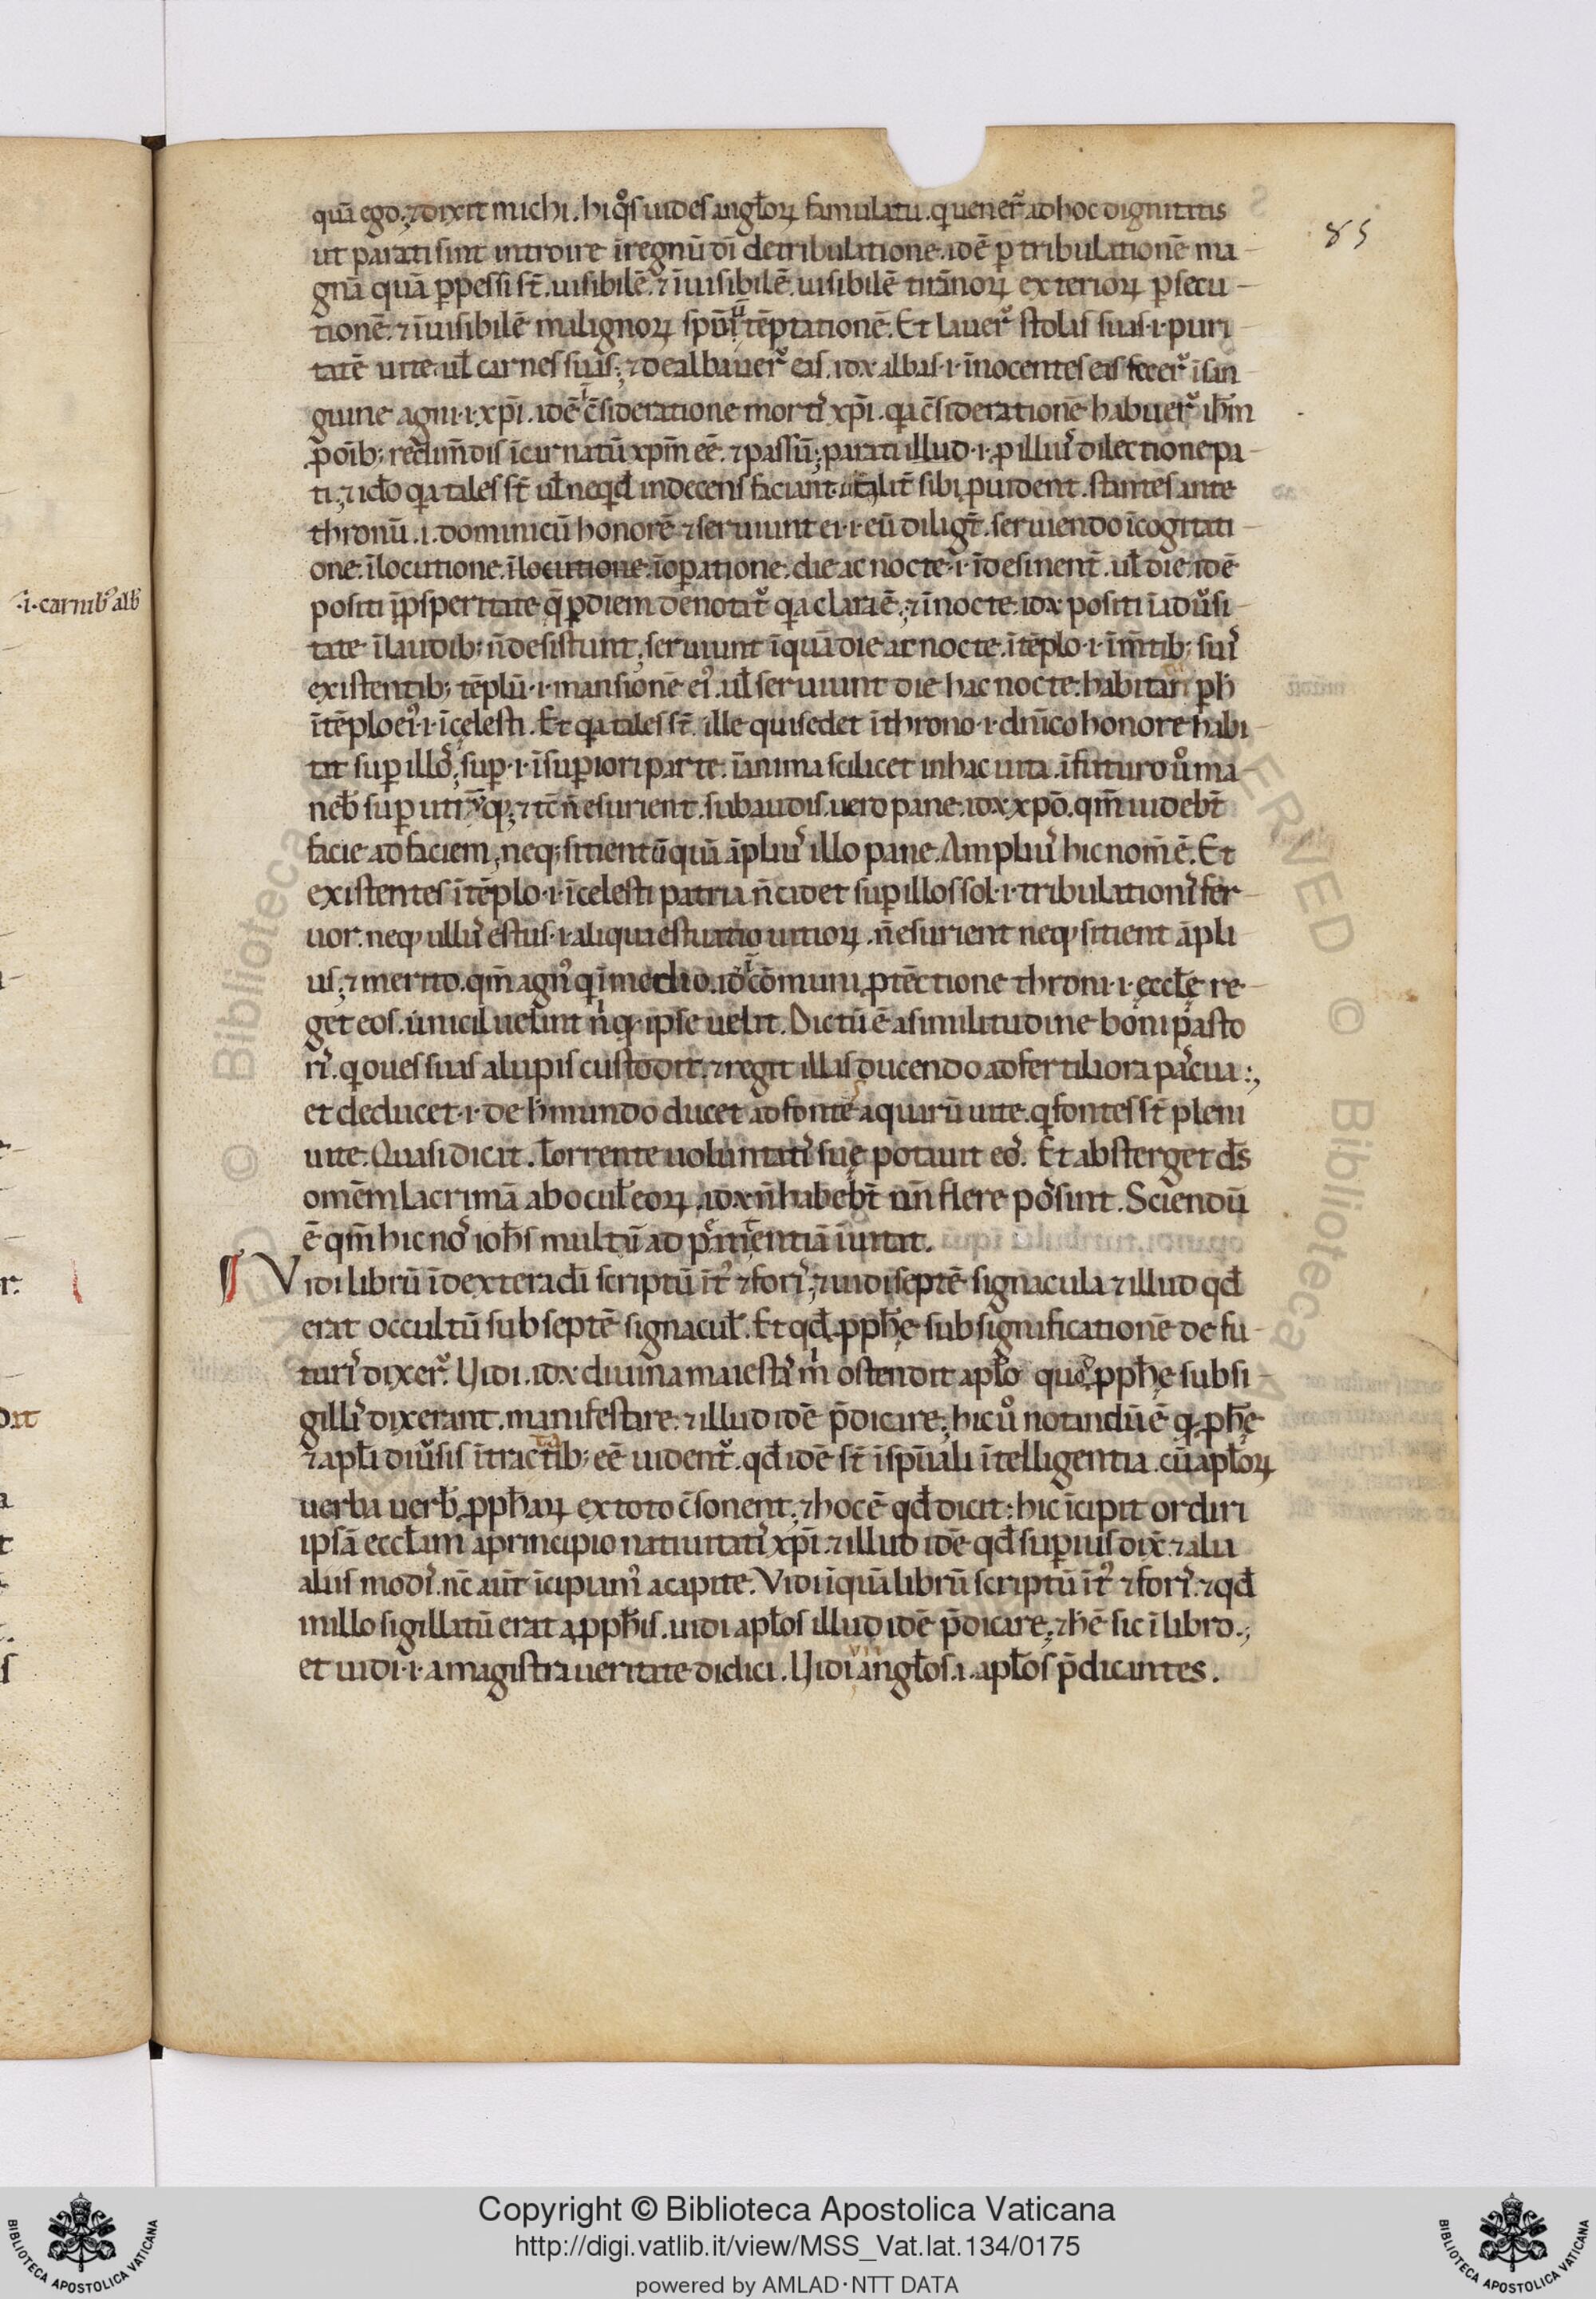 quā ego. ⁊ dixit michi. hi qͦs uides anglꝉoꝝ famulatu. q̇ uenerͬ ad hoc dignitatis
ut parati sint introire ī regnū dī de tribulatione. idē ꝑ tribulationē ma
gnā quā ꝑpessi st̄. uisibilē. ⁊ īuisibilē. uisibilē tirānoꝝ exterioꝝ ꝑsecu
tionē. ⁊ īuisibilē malignoꝝ sp̄uū tēptationē. Et lauerͬ stolas suas .i. puri
tatē uite. ul̄ carnes suas; ⁊ dealbauerͬ eas. idx albas .i. īnocentes eas fecerͬ ī san
guine agni .i. xp̄i. idē ī c̄sideratione mortꝭ xp̄i. qa c̄siderationē habuerͬ ih̄m
ꝓ oīb; redim̄dis īcarnatū xp̄m eē. ⁊ passū; parati illud .i. ꝓ illiꝰ dilectione pa
ti; ⁊ ido qa tales st̄ ul̄ neqd̄ indecens faciant sibi ꝓuident. stantes ante
thronū .i. dominicū honorē ⁊ seruiunt ei .i. eū diligt̄. seruiendo ī cogitati
one. ī locutione. ī locutione. ī oꝑatione. die ac nocte .i. īdesinent̄. ul̄ die. idē
positi ī ꝓsperitate q̄ ꝑ diem denotatͬ qa clara ē; ⁊ ī nocte. idx positi ī aduͥsi
tate ī laudib; n̄ desistunt; seruiunt īquā die ac nocte. ī tēplo .i. ī m̄tib; suꝭ
existentib; tēplū .i. mansionē eiꝰ. ul̄ seruiunt die hac nocte. habitan ꝑ h̄
ī tēplo eiꝰ .i. ī celesti. Et qa tales st̄. ille qui sedet ī throno .i. dn̄ico honore habi
tat suꝑ illos; suꝑ .i. ī suꝑiori parte. ī anima scilicet in hac uita. ī futuro uͦ ma
neb̄ suꝑ utrūq;. ⁊ tc̄ n̄ esurient. subaudis. uero pane. idx xp̄o. qm̄ uidebt̄
facie ad faciem; neq; sitient ūquā āpliꝰ illo pane. Ampliꝰ hic nom̄ ē. Et
existentes ī tēplo .i. ī celesti patria n̄ cadet suꝑ illos sol .i. tribulationꝭ fer
uor. neq; ullꝰ estus .i. aliqua estuatio uitioꝝ. n̄ esurient neq; sitient āpli
us; ⁊ merito. qm̄ agnꝰ q ī medio. id ī cōmuni ꝓtēctione throni .i. ęccl̄ę re
get eos. ut nichil uelint n̄ q. ipse uelit. Dictū ē a similitudine boni pasto
rꝭ. q oues suas a lupis custodit. ⁊ regit illas ducendo ad fertiliora pascua;
et deducet .i. de h̄ mundo ducet ad fontē aquarū uite. q fontes st̄ pleni
uite. Quasi dicit. Torrente uoluntatꝭ suę potauit eos. Et absterget ds̄
omēm lacrimā ab ocul̄ eoꝝ. idx n̄ habebt̄ un̄ flere possint. Sciendū
ē qm̄ hic nos ioh̄s multū ad penitentiā īuitat.
¶ Vidi librū ī dextera di scriptū ītꝰ ⁊ forꝭ; ⁊ uidi septē signacula ⁊ illud qd̄
erat occultū sub septē signacul̄. Et qd̄ ꝓph̄ę sub significationē de fu
turꝭ dixerͬ. Uidi. idx diuina maiestas m̄ ostendit apl̄os quę ꝓph̄ę sub si
gillꝭ dixerant. manifestare. ⁊ illud idē p̄dicare; hic uͦ notandū ē q ꝓph̄ę
⁊ apl̄i diuͥsis ī tractatib; eē uidentͬ. qd̄ idē st̄ ī spūali ītelligentia. cū apl̄oꝝ
uerba uerb̄ ꝓph̄aꝝ ex toto c̄sonent; ⁊ hoc ē qd̄ dicit; hic īcipit ordiri
ipsā eccl̄iam a principio natiuitatꝭ xp̄i. ⁊ illud idē qd̄ suꝑius dix̄. ⁊ alii
aliis modꝭ. nc̄ aut̄ īcipiamꝰ a capite. Vidi īquā librū scriptū ītꝰ ⁊ forꝭ. ⁊ qd̄
in illo sigillatū erat a ꝓph̄is. uidi apl̄os illud idē p̄dicare; ⁊ h̄ ē sic ī libro;
et uidi .i. a magistra ueritate didici. Uidi vii anglꝉos .i. apl̄os p̄dicantes.
85
.i. carnib; alb̄
Copyright © Biblioteca Apostolica Vaticana
http://digi.vatlib.it/view/MSS_Vat.lat.134/0175
powered by AMLAD·NTT DATA
BIBLIOTECA APOSTOLICA VATICANA
BIBLIOTECA APOSTOLICA VATICANA